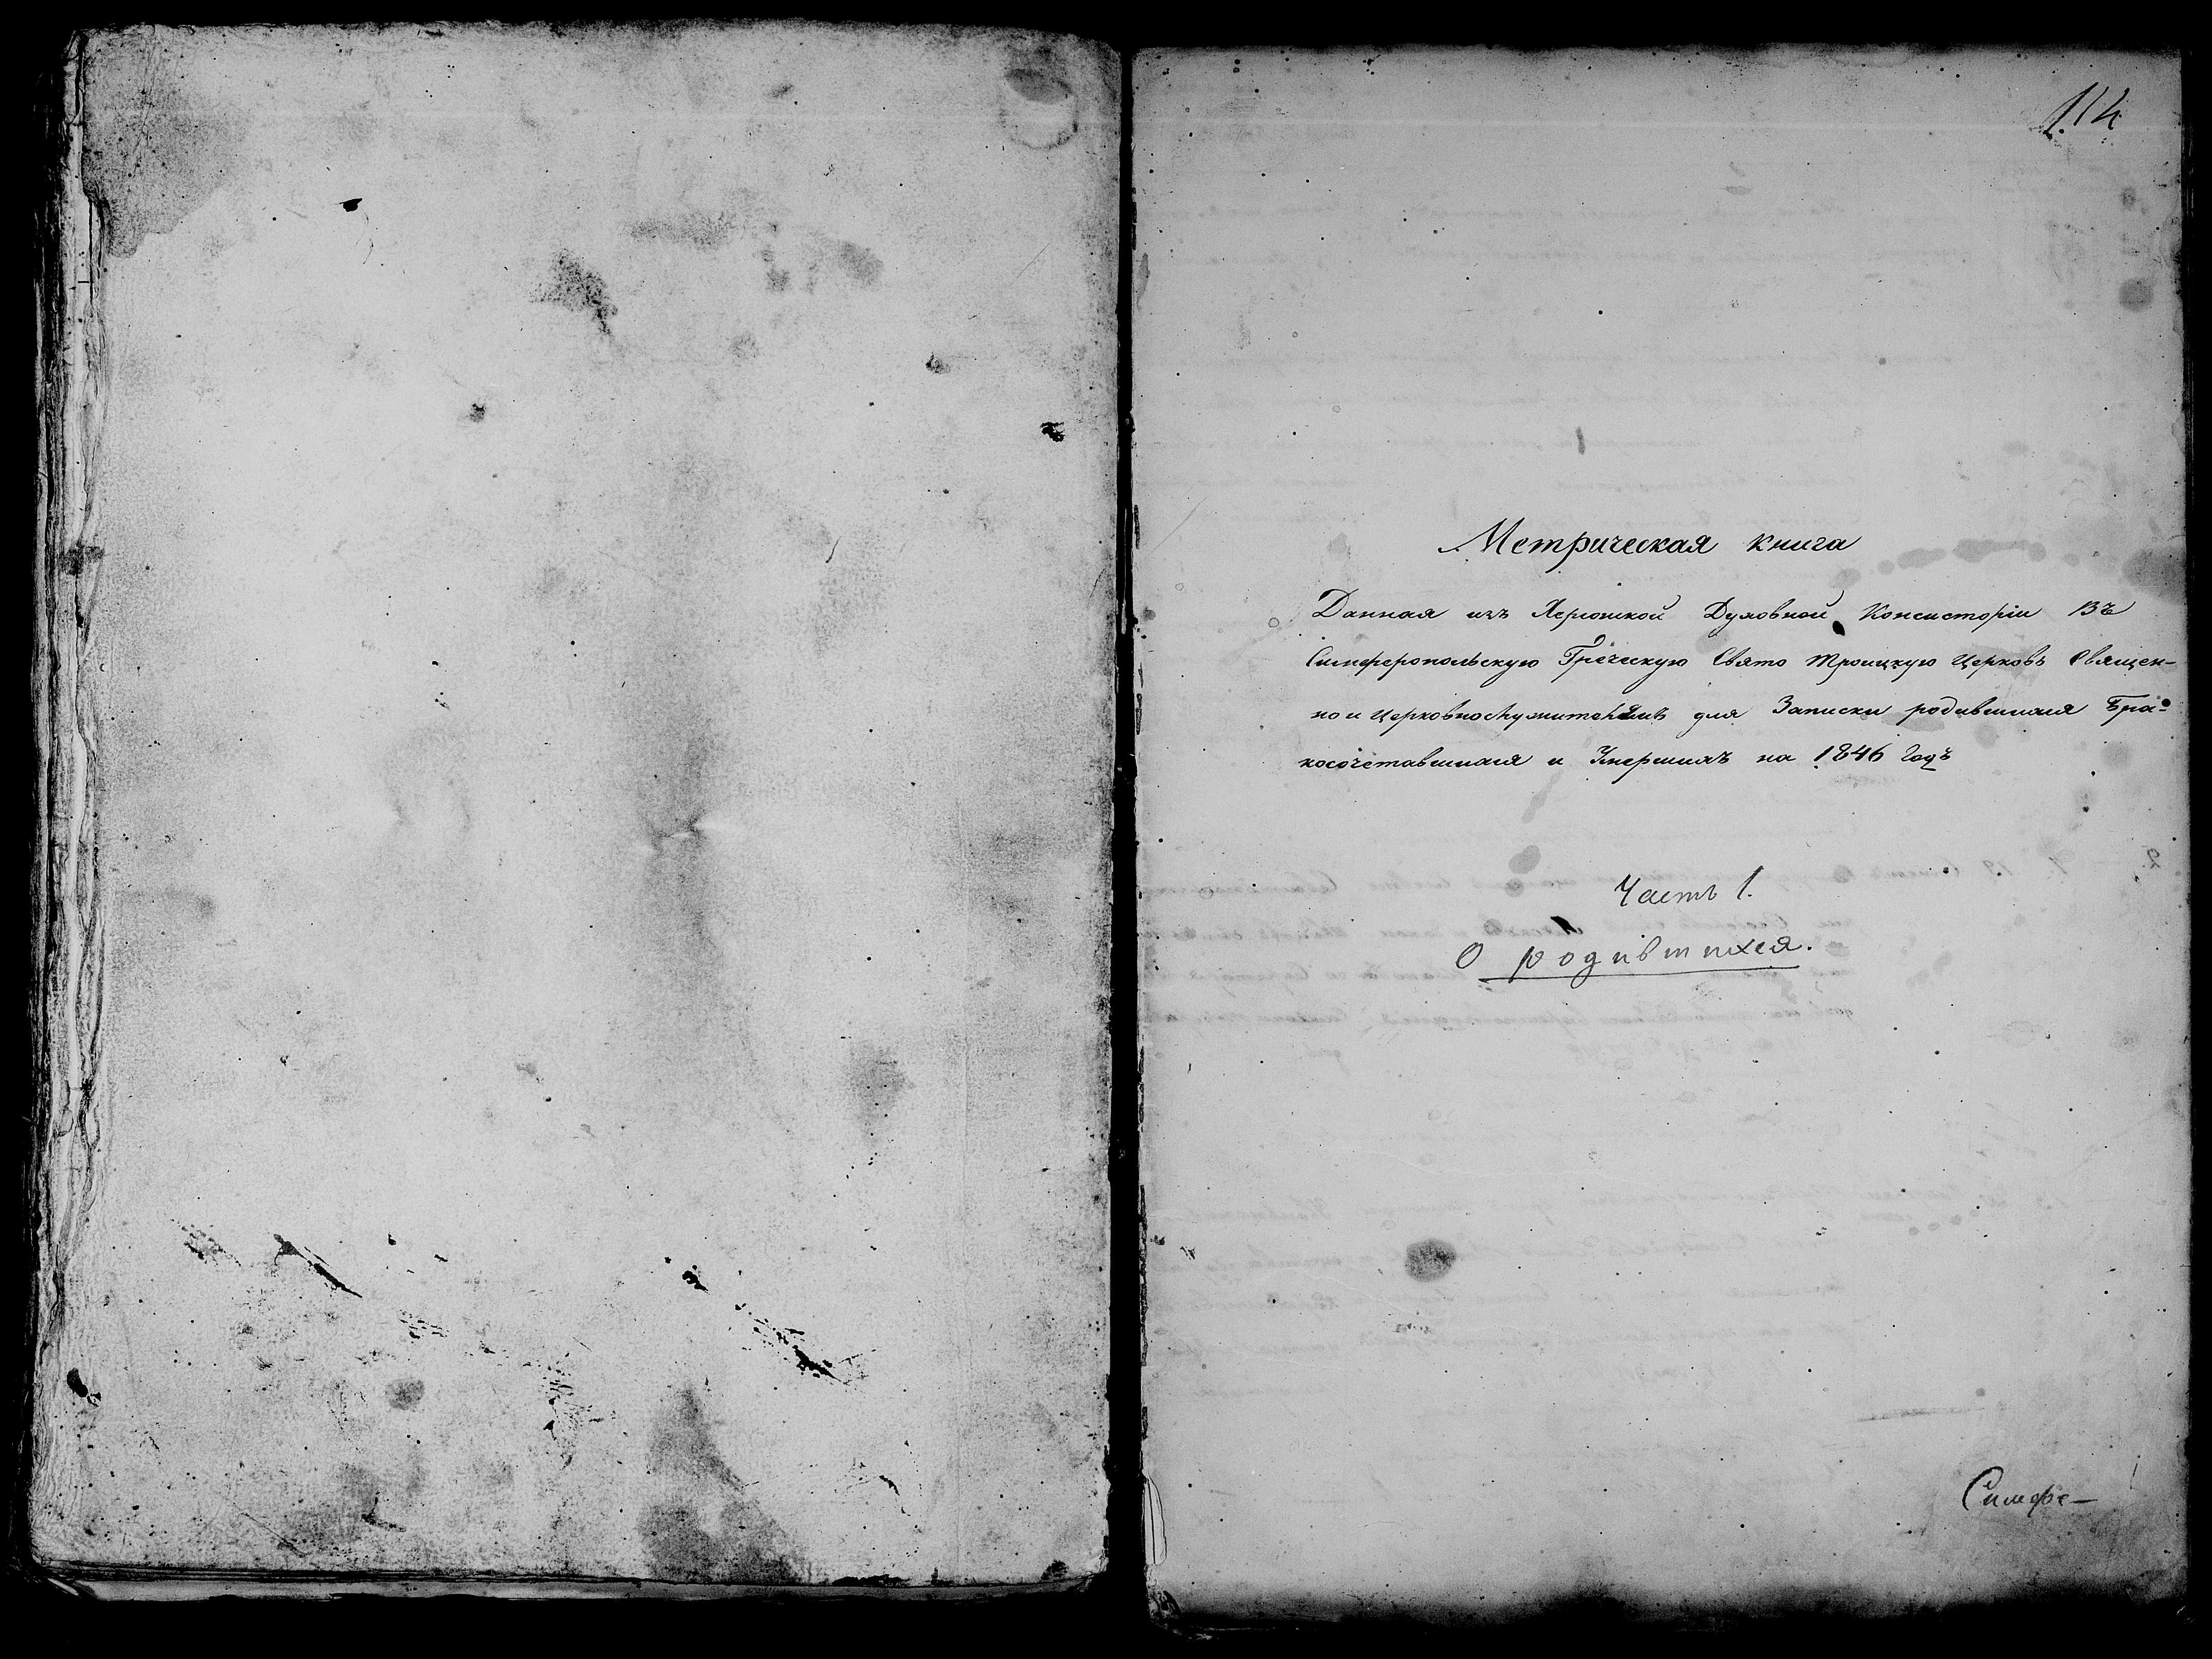 114
Метрическая книга
Данная изъ Херсонской Духовной Консисторіи въ
Симферопольскую Греческую Свято Троицкую Церковь Священ-
но и Церковнослужителямъ для Записки родившихся Бра-
косочетавшихся и Умершихъ на 1846 годъ
Часть 1.
О родившихся.
Симфе-